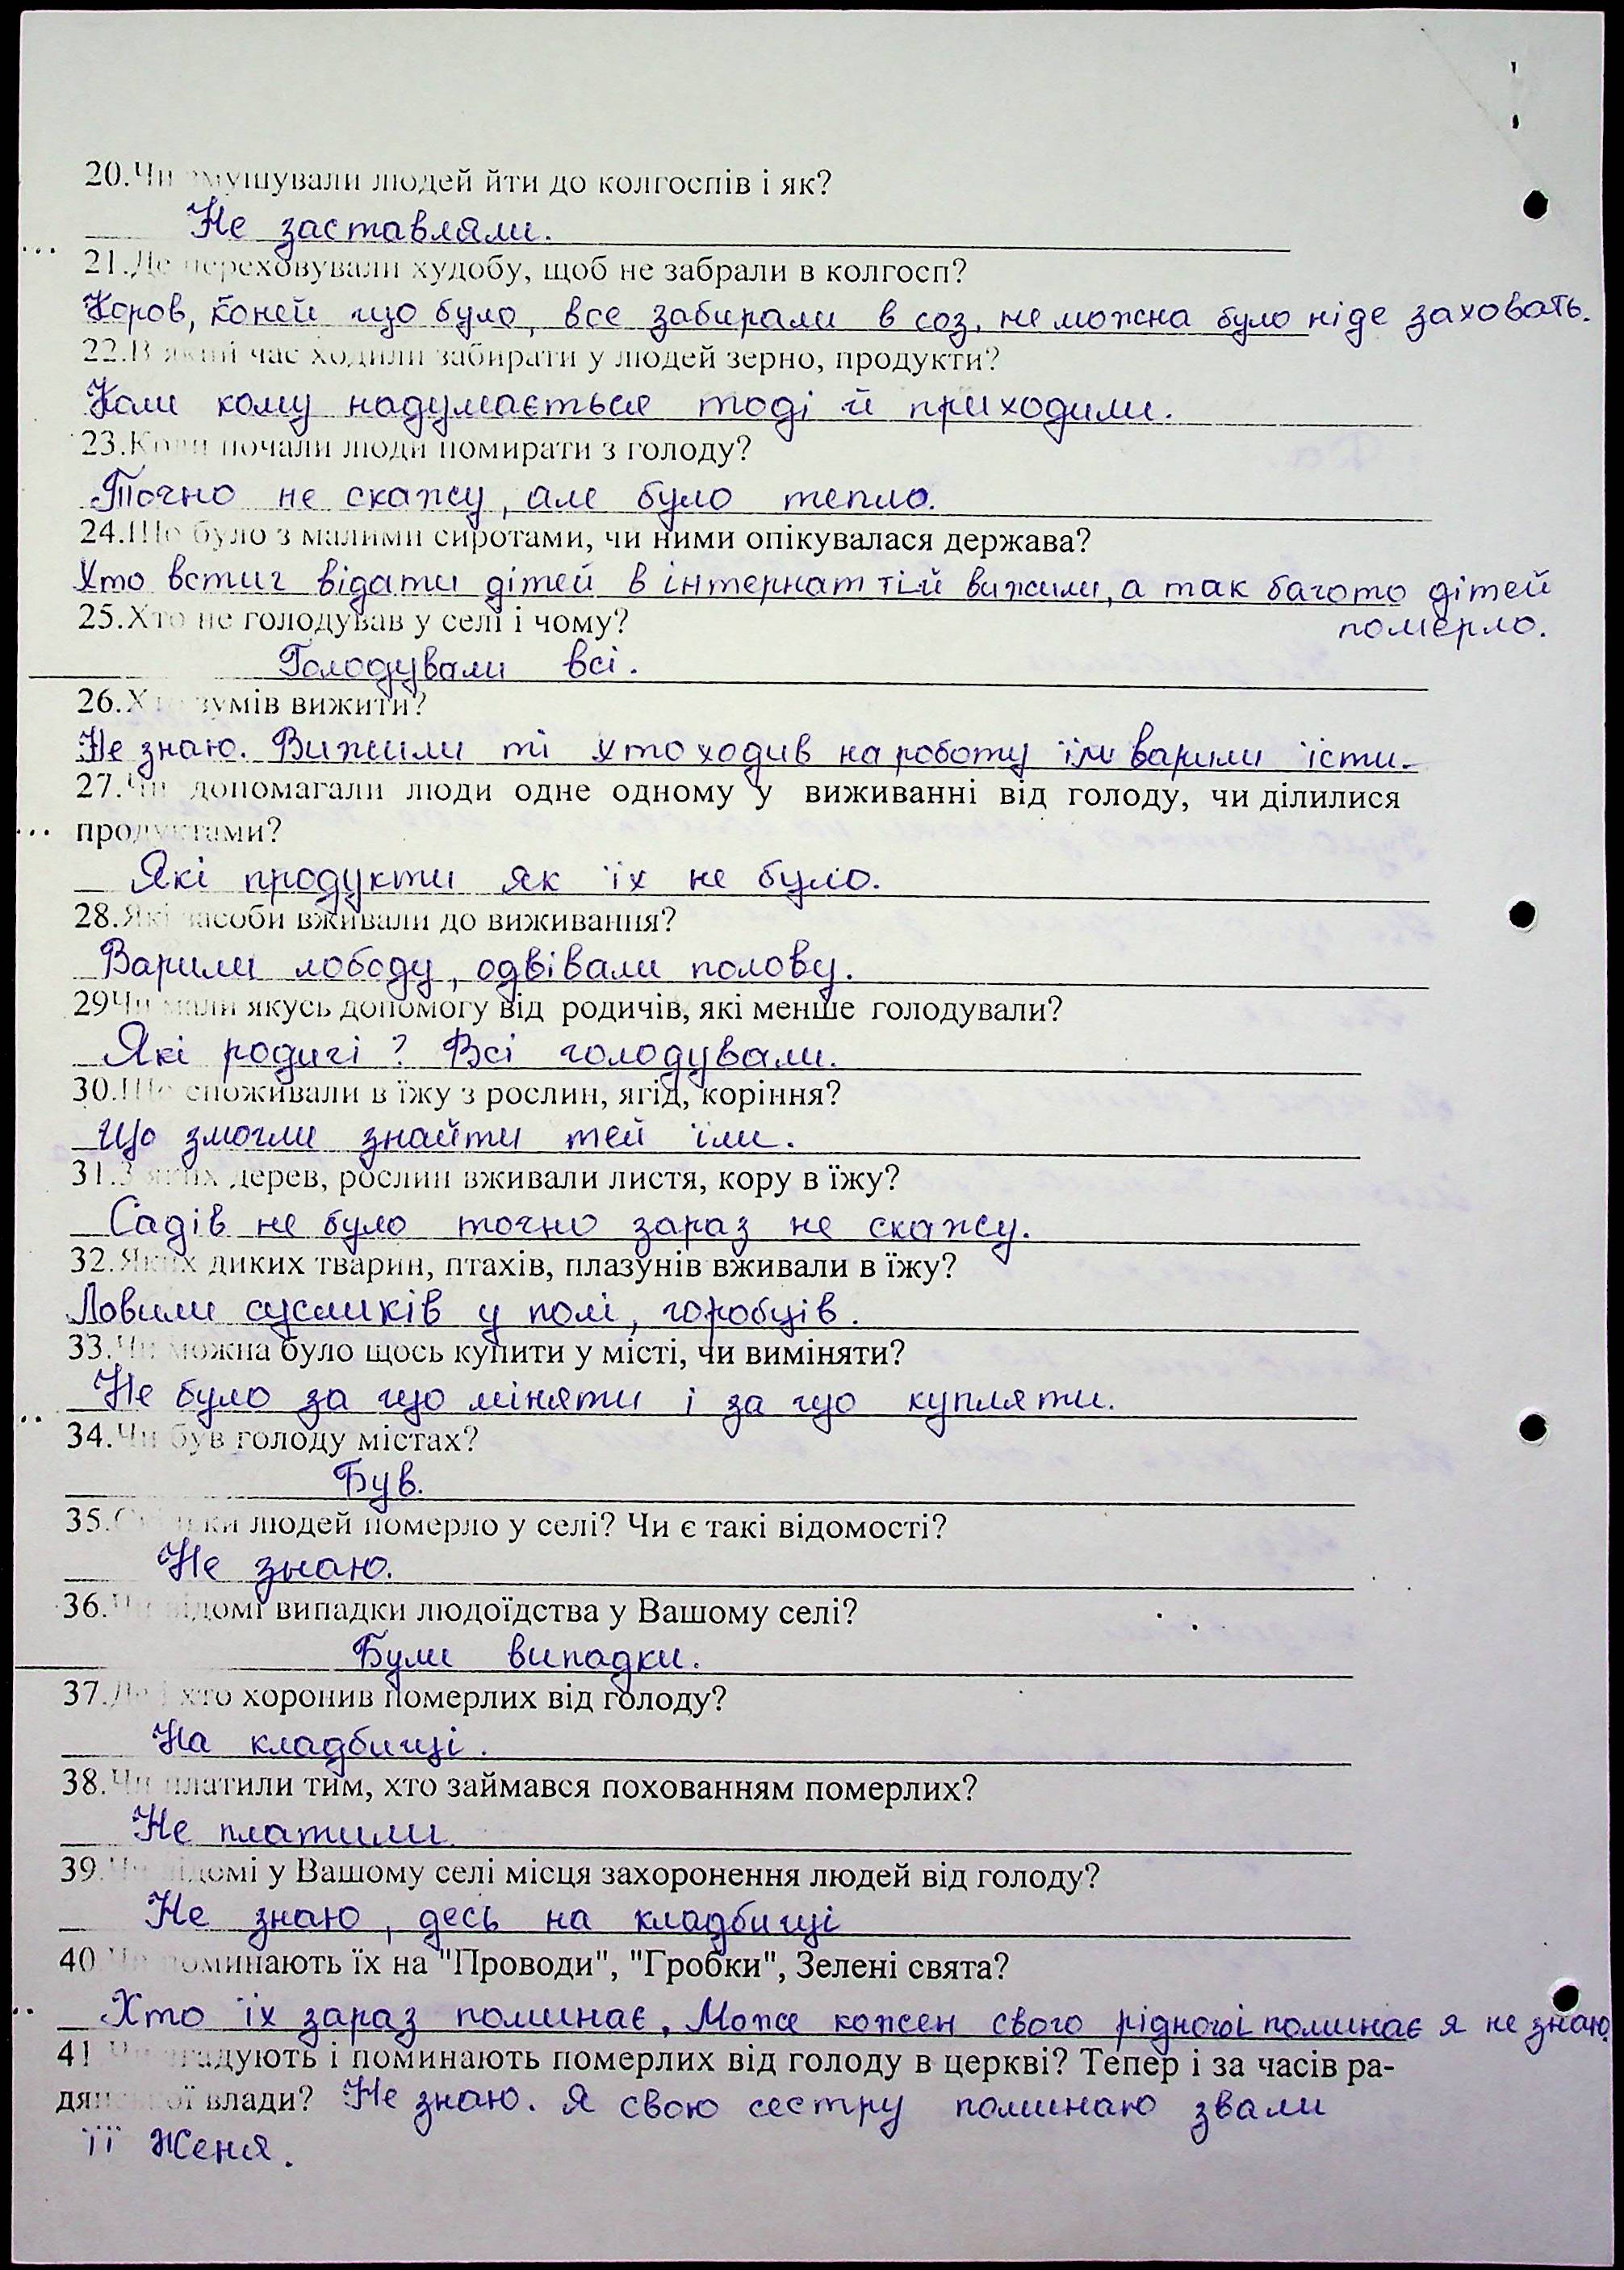 20.Чи змушували людей йти до колгоспів і як?
Не заставляли.
21.Де переховували худобу, щоб не забрали в колгосп?
Коров, коней що було, все забирали в соз. не можна було ніде заховать.
22.В який час ходили забирати у людей зерно, продукти?
Коли кому надумається тоді й приходили.
23.Коли почали люди помирати з голоду?
Точно не скажу, але було тепло.
24.Що було з малими сиротами, чи ними опікувалася держава?
Хто встиг відати дітей в інтернат тій вижили, а так багото дітей
25.Хто не голодував у селі і чому?
померло.
Голодували всі.
26.Хто зумів вижити?
Не знаю. Вижили ті хто ходив на роботу їм варили їсти.
27.Чи допомагали люди одне одному у виживанні від голоду, чи ділилися
продуктами?
Які продукти як їх не було.
28.Які засоби вживали до виживання?
Варили лободу, одвівали полову.
29Чи мали якусь допомогу від родичів, які менше голодували?
Які родичі? Всі голодували.
30.Що споживали в їжу з рослин, ягід, коріння?
Що змогли знайти тей їли.
31.З яких дерев, рослин вживали листя, кору в їжу?
Садів не було точно зараз не скажу.
32.Яких диких тварин, птахів, плазунів вживали в їжу?
Ловили сусликів у полі, горобців.
33.Чи можна було щось купити у місті, чи виміняти?
Не було за що міняти і за що купляти.
34.Чи був голоду містах?
Був.
35.Скільки людей померло у селі? Чи є такі відомості?
Не знаю.
36.Чи відомі випадки людоїдства у Вашому селі?
Були випадки.
37.Де і хто хоронив померлих від голоду?
На кладбищі.
38.Чи платили тим, хто займався похованням померлих?
Не платили.
39.Чи відомі у Вашому селі місця захоронення людей від голоду?
Не знаю, десь на кладбищі
40.Чи поминають їх на "Проводи", "Гробки", Зелені свята?
Хто їх зараз поминає. Може кожен свого поминає я не знаю.
41.Чи згадують і поминають померлих від голоду в церкві? Тепер і за часів ра-
дянської влади? Не знаю. Я свою сестру поминаю звали
її Женя.